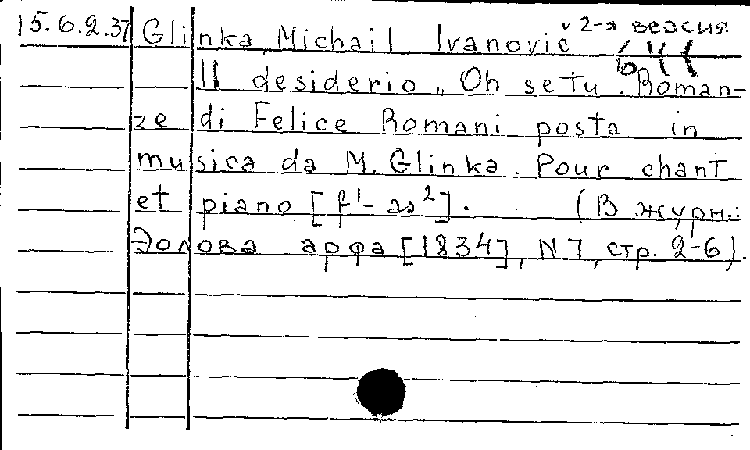 15.6.2.37 Glinka Michail Ivanovič 2-я версия
Il desiderio „Oh se tu. Roman-
ze di Felice Romani posta in
musica da M. Glinka. Pour chant
et piano [f¹-as²]. (В журн.:
Эолова арфа [1834], N 7, стр. 2-6).